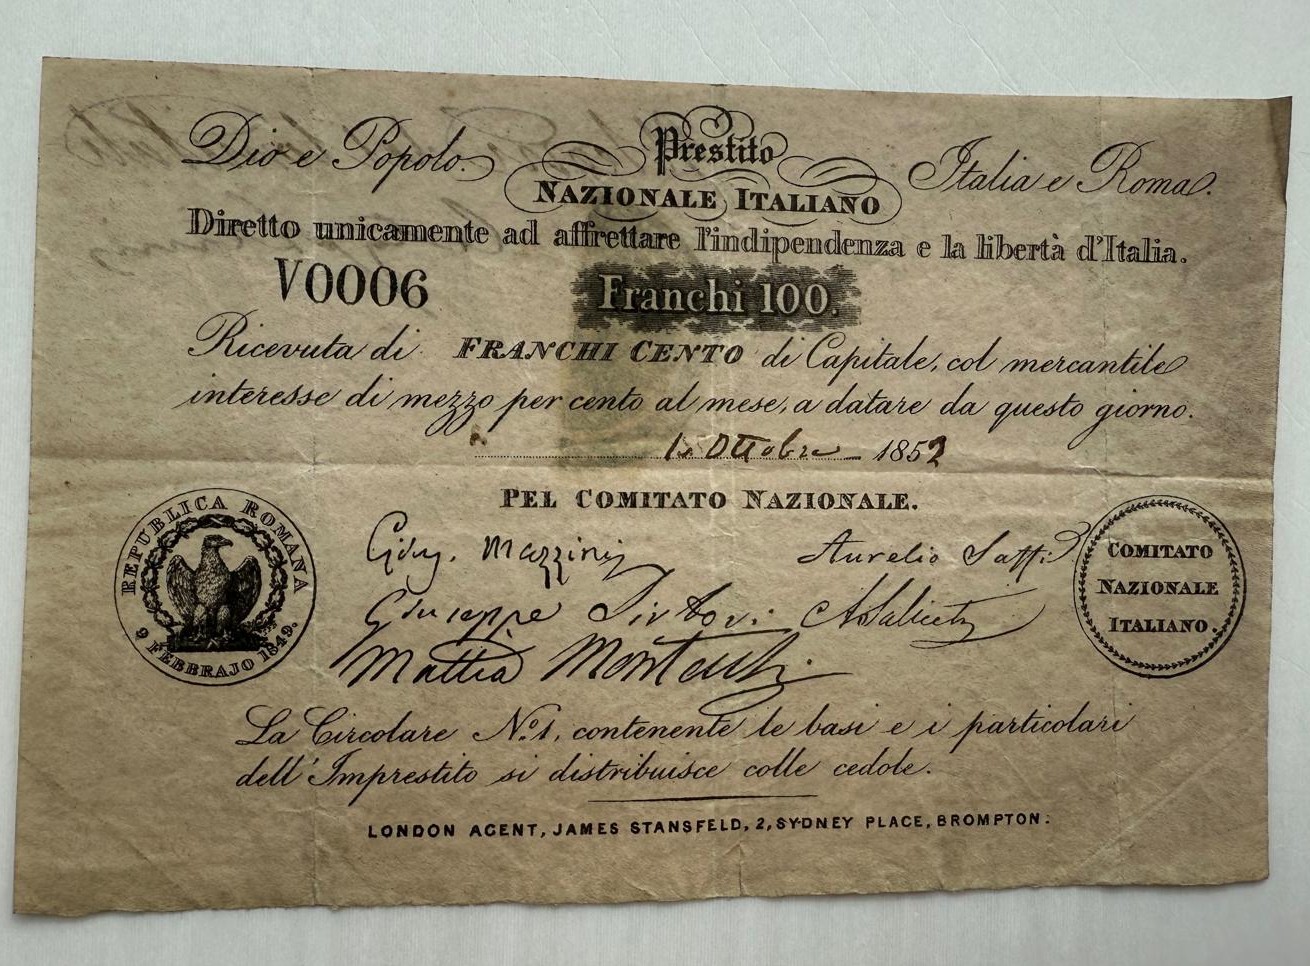 Dio e Popolo. Prestito Italia e Roma.
NAZIONALE ITALIANO
Diretto unicamente ad affrettare l'indipendenza e la libertà d'Italia.
V0006 Franchi 100.
Ricevuta di FRANCHI CENTO di Capitale, col mercantile
interesse di mezzo per cento al mese, a datare da questo giorno.
Ottobre 1852
PEL COMITATO NAZIONALE.
REPUBLICA ROMANA
9 FEBBRAJO 1849.
Mazzini Aurelio Saffi
Giuseppe Sirtori. A Saliceti
Mattia Montecchi.
COMITATO
NAZIONALE
ITALIANO.
La Circolare No. 1, contenente le basi e i particolari
dell'Imprestito si distribuisce colle cedole.
LONDON AGENT, JAMES STANSFELD, 2, SYDNEY PLACE, BROMPTON.